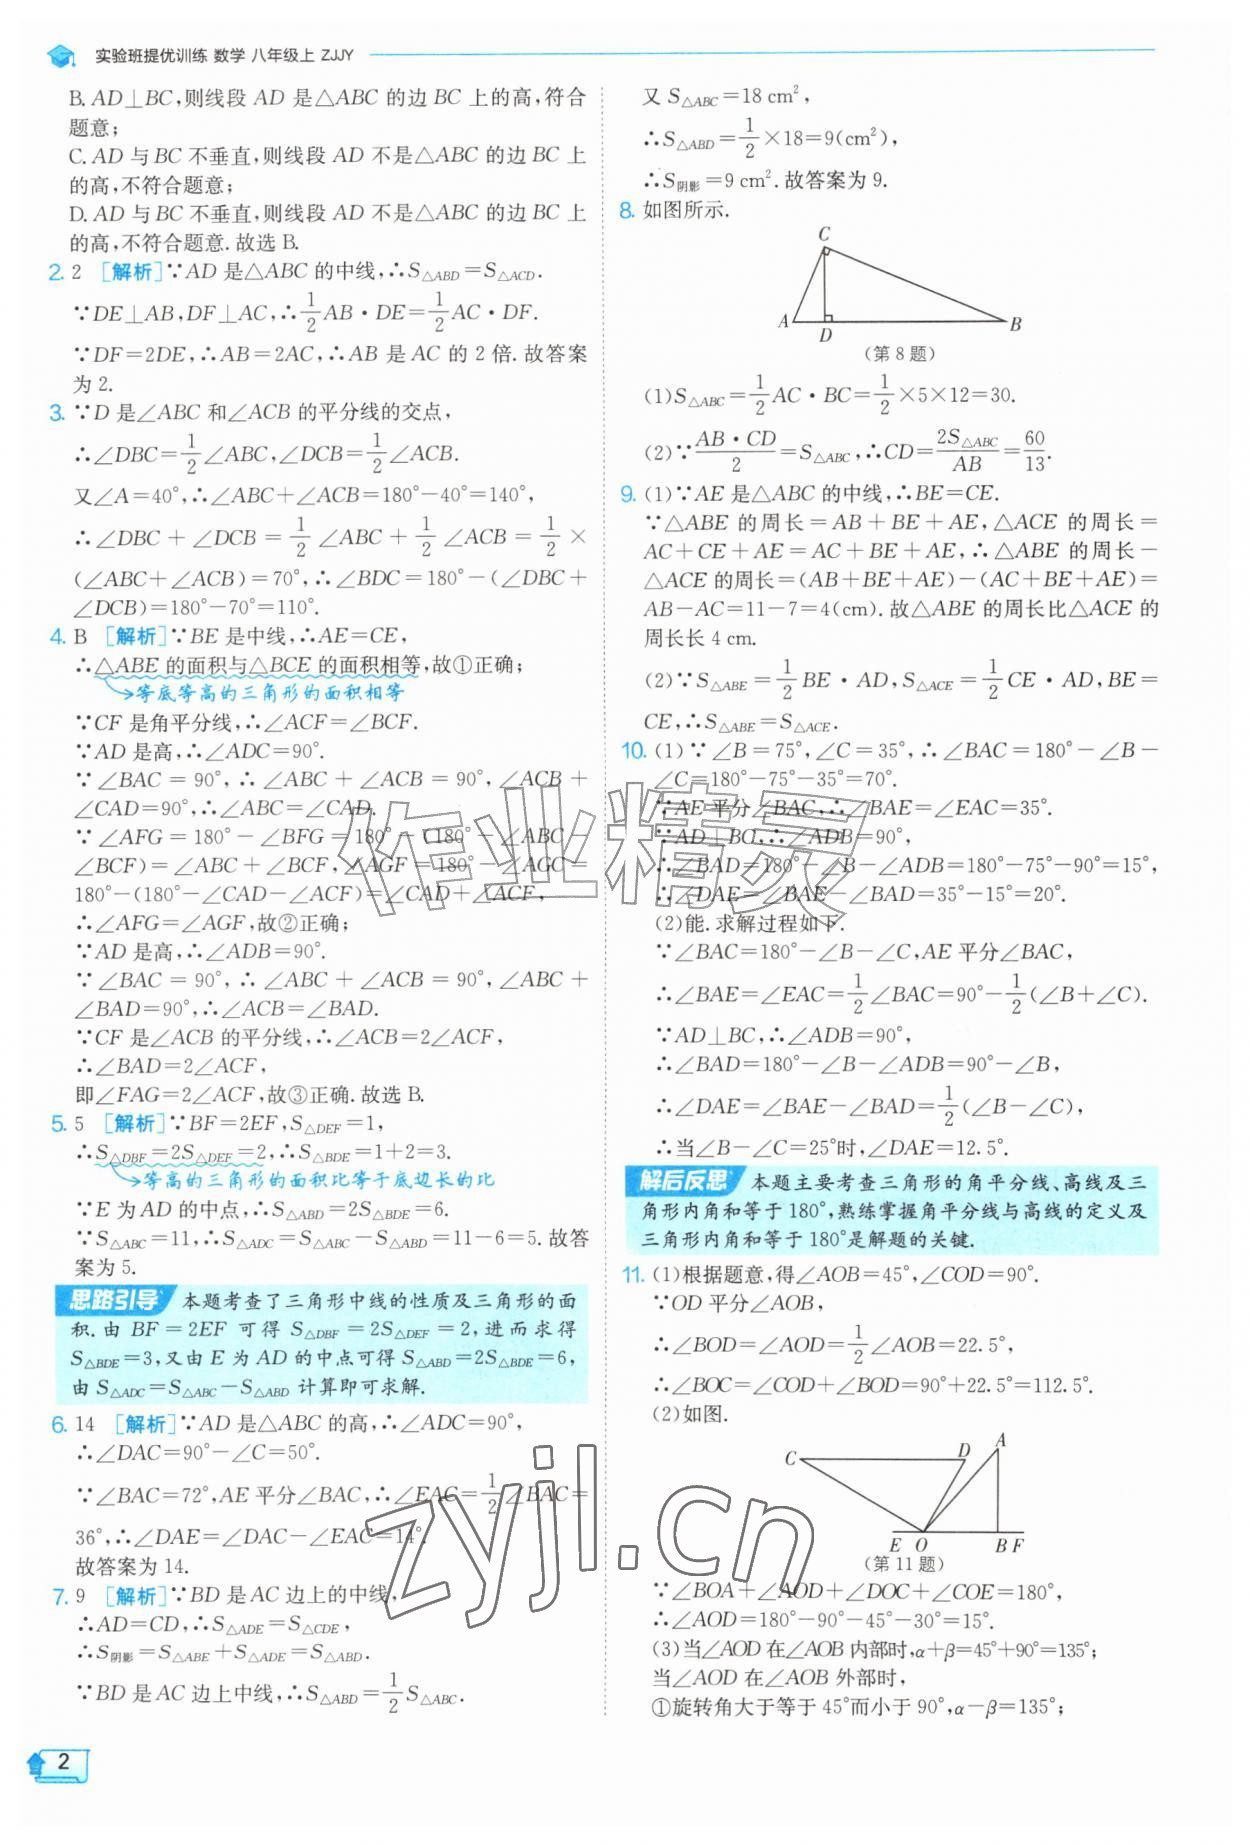 实验班提优训练 数学 八年级上 ZJJY
B. AD⊥BC,则线段 AD 是△ABC 的边 BC 上的高,符合
题意;
C. AD 与 BC 不垂直,则线段 AD 不是△ABC 的边 BC 上
的高,不符合题意;
D. AD 与 BC 不垂直,则线段 AD 不是△ABC 的边 BC 上
的高,不符合题意.故选 B.
2. 2 [解析]∵AD 是△ABC 的中线,∴S△ABD=S△ACD.
∵DE⊥AB,DF⊥AC,∴1/2 AB·DE=1/2 AC·DF.
∵DF=2DE,∴AB=2AC,∴AB 是 AC 的 2 倍.故答案
为 2.
3. ∵D 是∠ABC 和∠ACB 的平分线的交点,
∴∠DBC=1/2∠ABC,∠DCB=1/2∠ACB.
又∠A=40°,∴∠ABC+∠ACB=180°-40°=140°,
∴∠DBC+∠DCB=1/2∠ABC+1/2∠ACB=1/2×
(∠ABC+∠ACB)=70°,∴∠BDC=180°-(∠DBC+
∠DCB)=180°-70°=110°.
4. B [解析]∵BE 是中线,∴AE=CE,
∴△ABE 的面积与△BCE 的面积相等,故①正确;
→等底等高的三角形的面积相等
∵CF 是角平分线,∴∠ACF=∠BCF.
∵AD 是高,∴∠ADC=90°.
∵∠BAC=90°,∴∠ABC+∠ACB=90°,∠ACB+
∠CAD=90°,∴∠ABC=∠CAD.
∵∠AFG=180°-∠BFG=180°-(180°-∠ABC-
∠BCF)=∠ABC+∠BCF,∠AGF=180°-∠AGC=
180°-(180°-∠CAD-∠ACF)=∠CAD+∠ACF,
∴∠AFG=∠AGF,故②正确;
∵AD 是高,∴∠ADB=90°.
∵∠BAC=90°,∴∠ABC+∠ACB=90°,∠ABC+
∠BAD=90°,∴∠ACB=∠BAD.
∵CF 是∠ACB 的平分线,∴∠ACB=2∠ACF,
∴∠BAD=2∠ACF,
即∠FAG=2∠ACF,故③正确.故选 B.
5. 5 [解析]∵BF=2EF,S△DEF=1,
∴S△DBF=2S△DEF=2,∴S△BDE=1+2=3.
→等高的三角形的面积比等于底边长的比
∵E 为 AD 的中点,∴S△ABD=2S△BDE=6.
∵S△ABC=11,∴S△ADC=S△ABC-S△ABD=11-6=5.故答
案为 5.
思路引导 本题考查了三角形中线的性质及三角形的面
积.由 BF=2EF 可得 S△DBF=2S△DEF=2,进而求得
S△BDE=3,又由 E 为 AD 的中点可得 S△ABD=2S△BDE=6,
由 S△ADC=S△ABC-S△ABD 计算即可求解.
6. 14 [解析]∵AD 是△ABC 的高,∴∠ADC=90°,
∴∠DAC=90°-∠C=50°.
∵∠BAC=72°,AE 平分∠BAC,∴∠EAC=1/2∠BAC=
36°,∴∠DAE=∠DAC-∠EAC=14°.
故答案为 14.
7. 9 [解析]∵BD 是 AC 边上的中线,
∴AD=CD,∴S△ADE=S△CDE,
∴S阴影=S△ABE+S△ADE=S△ABD.
∵BD 是 AC 边上中线,∴S△ABD=1/2 S△ABC.
2
又 S△ABC=18 cm²,
∴S△ABD=1/2×18=9(cm²),
∴S阴影=9 cm².故答案为 9.
8. 如图所示.
C
A D B
(第 8 题)
(1)S△ABC=1/2 AC·BC=1/2×5×12=30.
(2)∵AB·CD/2=S△ABC,∴CD=2S△ABC/AB=60/13.
9. (1)∵AE 是△ABC 的中线,∴BE=CE.
∵△ABE 的周长=AB+BE+AE,△ACE 的周长=
AC+CE+AE=AC+BE+AE,∴△ABE 的周长-
△ACE 的周长=(AB+BE+AE)-(AC+BE+AE)=
AB-AC=11-7=4(cm).故△ABE 的周长比△ACE 的
周长长 4 cm.
(2)∵S△ABE=1/2 BE·AD,S△ACE=1/2 CE·AD,BE=
CE,∴S△ABE=S△ACE.
10. (1)∵∠B=75°,∠C=35°,∴∠BAC=180°-∠B-
∠C=180°-75°-35°=70°.
∵AE 平分∠BAC,∴∠BAE=∠EAC=35°.
∵AD⊥BC,∴∠ADB=90°,
∴∠BAD=180°-∠B-∠ADB=180°-75°-90°=15°,
∴∠DAE=∠BAE-∠BAD=35°-15°=20°.
(2)能.求解过程如下.
∵∠BAC=180°-∠B-∠C,AE 平分∠BAC,
∴∠BAE=∠EAC=1/2∠BAC=90°-1/2(∠B+∠C).
∵AD⊥BC,∴∠ADB=90°,
∴∠BAD=180°-∠B-∠ADB=90°-∠B,
∴∠DAE=∠BAE-∠BAD=1/2(∠B-∠C),
∴当∠B-∠C=25°时,∠DAE=12.5°.
解后反思 本题主要考查三角形的角平分线、高线及三
角形内角和等于 180°,熟练掌握角平分线与高线的定义及
三角形内角和等于 180°是解题的关键.
11. (1)根据题意,得∠AOB=45°,∠COD=90°.
∵OD 平分∠AOB,
∴∠BOD=∠AOD=1/2∠AOB=22.5°,
∴∠BOC=∠COD+∠BOD=90°+22.5°=112.5°.
(2)如图.
C D A
E O B F
(第 11 题)
∵∠BOA+∠AOD+∠DOC+∠COE=180°,
∴∠AOD=180°-90°-45°-30°=15°.
(3)当∠AOD 在∠AOB 内部时,α+β=45°+90°=135°;
当∠AOD 在∠AOB 外部时,
①旋转角大于等于 45°而小于 90°,α-β=135°;
作业精灵
zyjl.cn